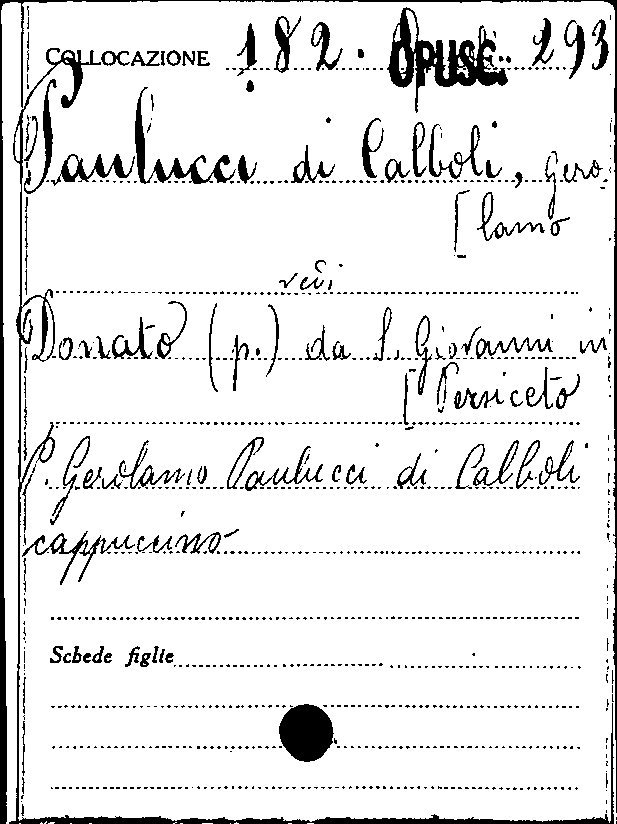 COLLOCAZIONE 182. OPUSC. 293
Paulucci di Calboli, Gero-
[lamo
vedi
Donato (p.) da S. Giovanni in
[Persiceto
P. Gerolamo Paulucci di Calboli
cappuccino
Schede figlie